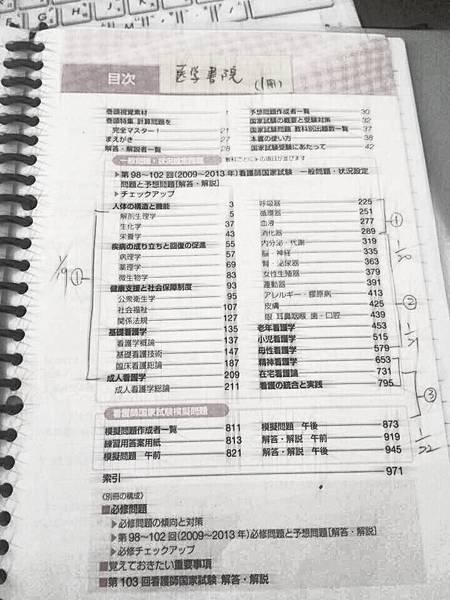 目次
医学書院 (1冊)
巻頭視覚素材 1
巻頭特集 計算問題を
完全マスター! 21
まえがき 27
解答・解説者一覧 28
予想問題作成者一覧 30
国家試験の概要と受験対策 32
国家試験問題 教科別出題数一覧 37
本書の使い方 38
国家試験受験にあたって 42
一般問題・状況設定問題
教科ごとに▶の項目が並びます
▶第98~102回(2009~2013年)看護師国家試験 一般問題・状況設定
問題と予想問題[解答・解説]
▶チェックアップ
人体の構造と機能 3
解剖生理学 5
生化学 37
栄養学 43
疾病の成り立ちと回復の促進 55
病理学 57
薬理学 69
微生物学 83
健康支援と社会保障制度 93
公衆衛生学 95
社会福祉 107
関係法規 127
基礎看護学 135
看護学概論 137
基礎看護技術 147
臨床看護総論 187
成人看護学 209
成人看護学総論 211
呼吸器 225
循環器 251
血液 277
消化器 289
内分泌・代謝 319
脳・神経 335
腎・泌尿器 363
女性生殖器 379
運動器 391
アレルギー・膠原病 413
皮膚 425
眼 耳鼻咽喉 歯・口腔 439
老年看護学 453
小児看護学 515
母性看護学 579
精神看護学 653
在宅看護論 731
看護の統合と実践 795
1/19 ①
①
1/20
②
③
1/22
看護師国家試験模擬問題
模擬問題作成者一覧 811
練習用答案用紙 813
模擬問題 午前 821
模擬問題 午後 873
解答・解説 午前 919
解答・解説 午後 945
索引 971
〈別冊の構成〉
■必修問題
▶必修問題の傾向と対策
▶第98~102回(2009~2013年)必修問題と予想問題[解答・解説]
▶必修チェックアップ
■覚えておきたい重要事項
■第103回看護師国家試験 解答・解説